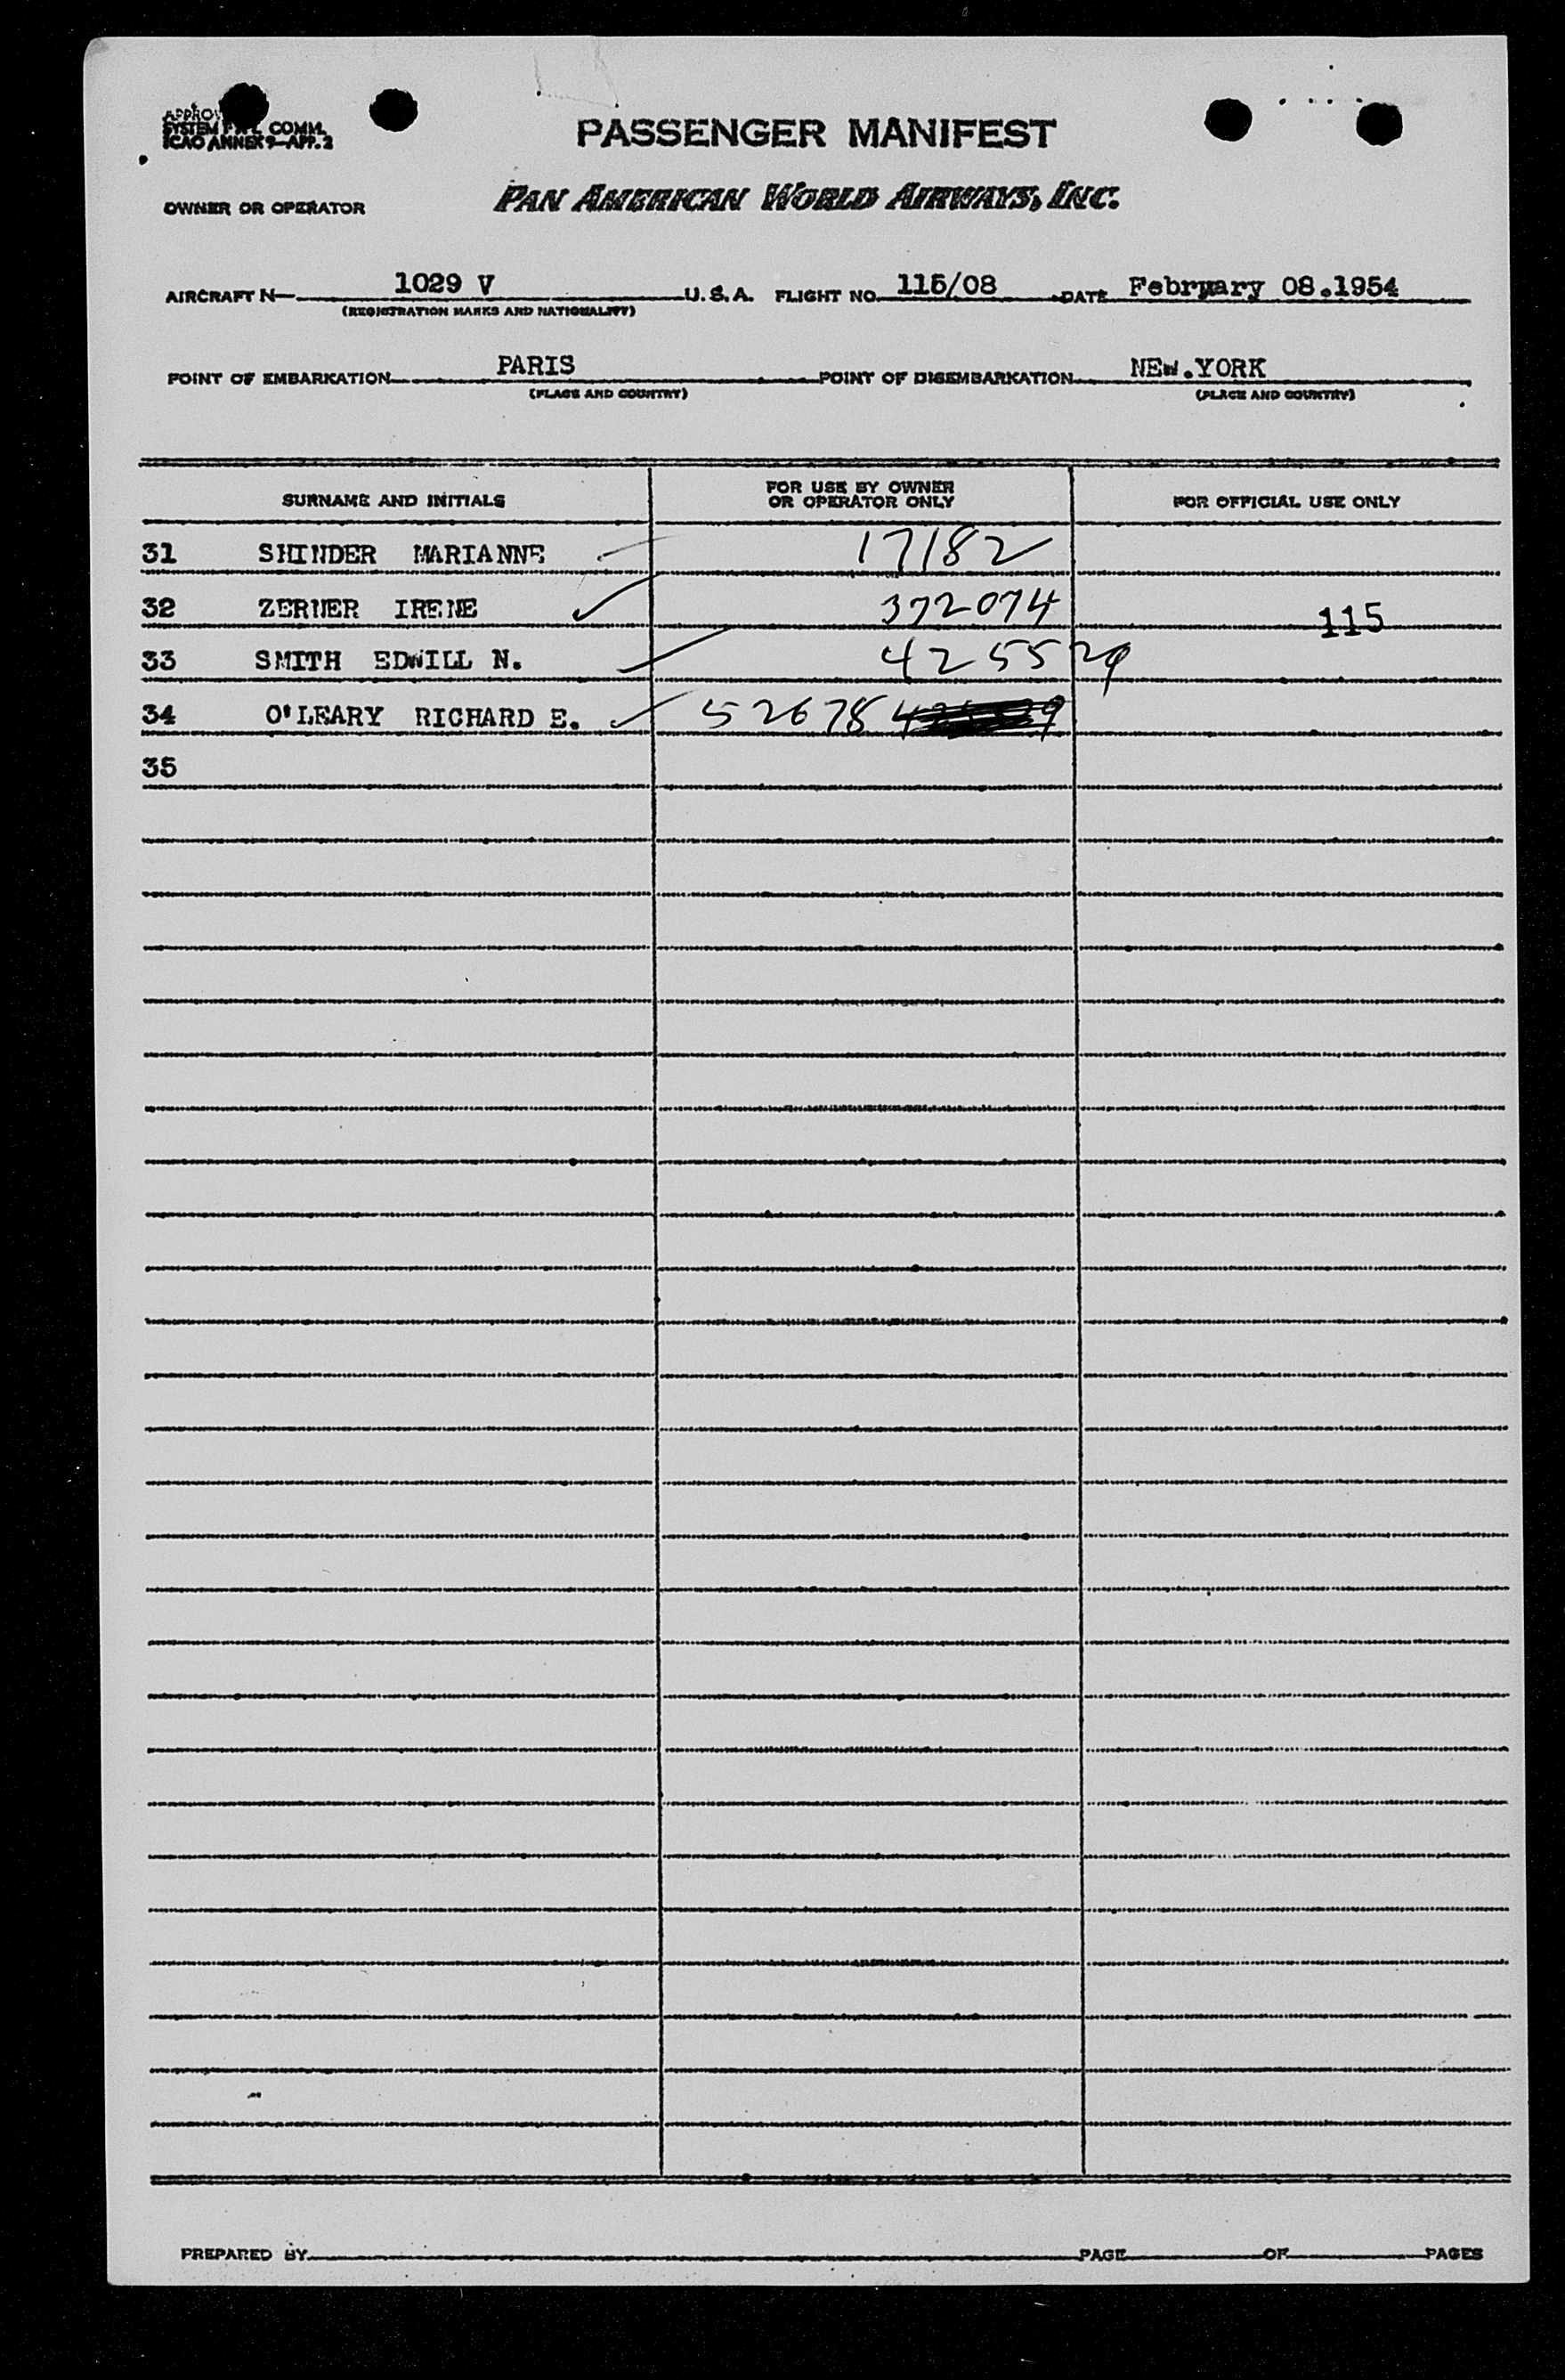 SYSTEM COMM.
ICAO ANNEX 9-APP. 2
PASSENGER MANIFEST
OWNER OR OPERATOR PAN AMERICAN WORLD AIRWAYS, INC.
AIRCRAFT N 1029 V U.S.A. FLIGHT NO. 115/08 DATE February 08.1954
(REGISTRATION MARKS AND NATIONALITY)
POINT OF EMBARKATION PARIS POINT OF DISEMBARKATION NEW.YORK
(PLACE AND COUNTRY) (PLACE AND COUNTRY)
SURNAME AND INITIALS FOR USE BY OWNER OR OPERATOR ONLY FOR OFFICIAL USE ONLY
31 SHINDER MARIANNE 17182
32 ZERNER IRENE 372074 115
33 SMITH EDWILL N. 425529
34 O'LEARY RICHARD E. 52678
35
PREPARED BY PAGE OF PAGES